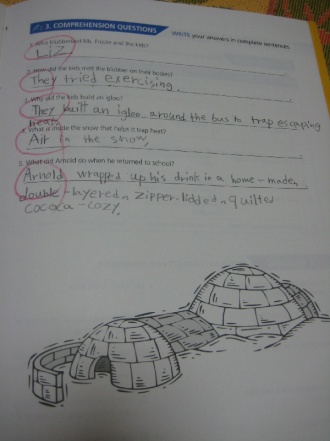 3. COMPREHENSION QUESTIONS
WRITE your answers in complete sentences.
1. Who frustrated Ms. Frizzle and the kids?
Liz
2. How did the kids melt the on their bodies?
They tried exercising.
3. Why did the kids build an igloo?
They built an igloo around the bus to trap escaping
heat.
4. What is inside the snow that helps it trap heat?
Air in the snow.
5. What did Arnold do when he returned to school?
Arnold wrapped up his drink in a home-made,
double-layered, zipper-lidded, quilted
cococa-cozy.